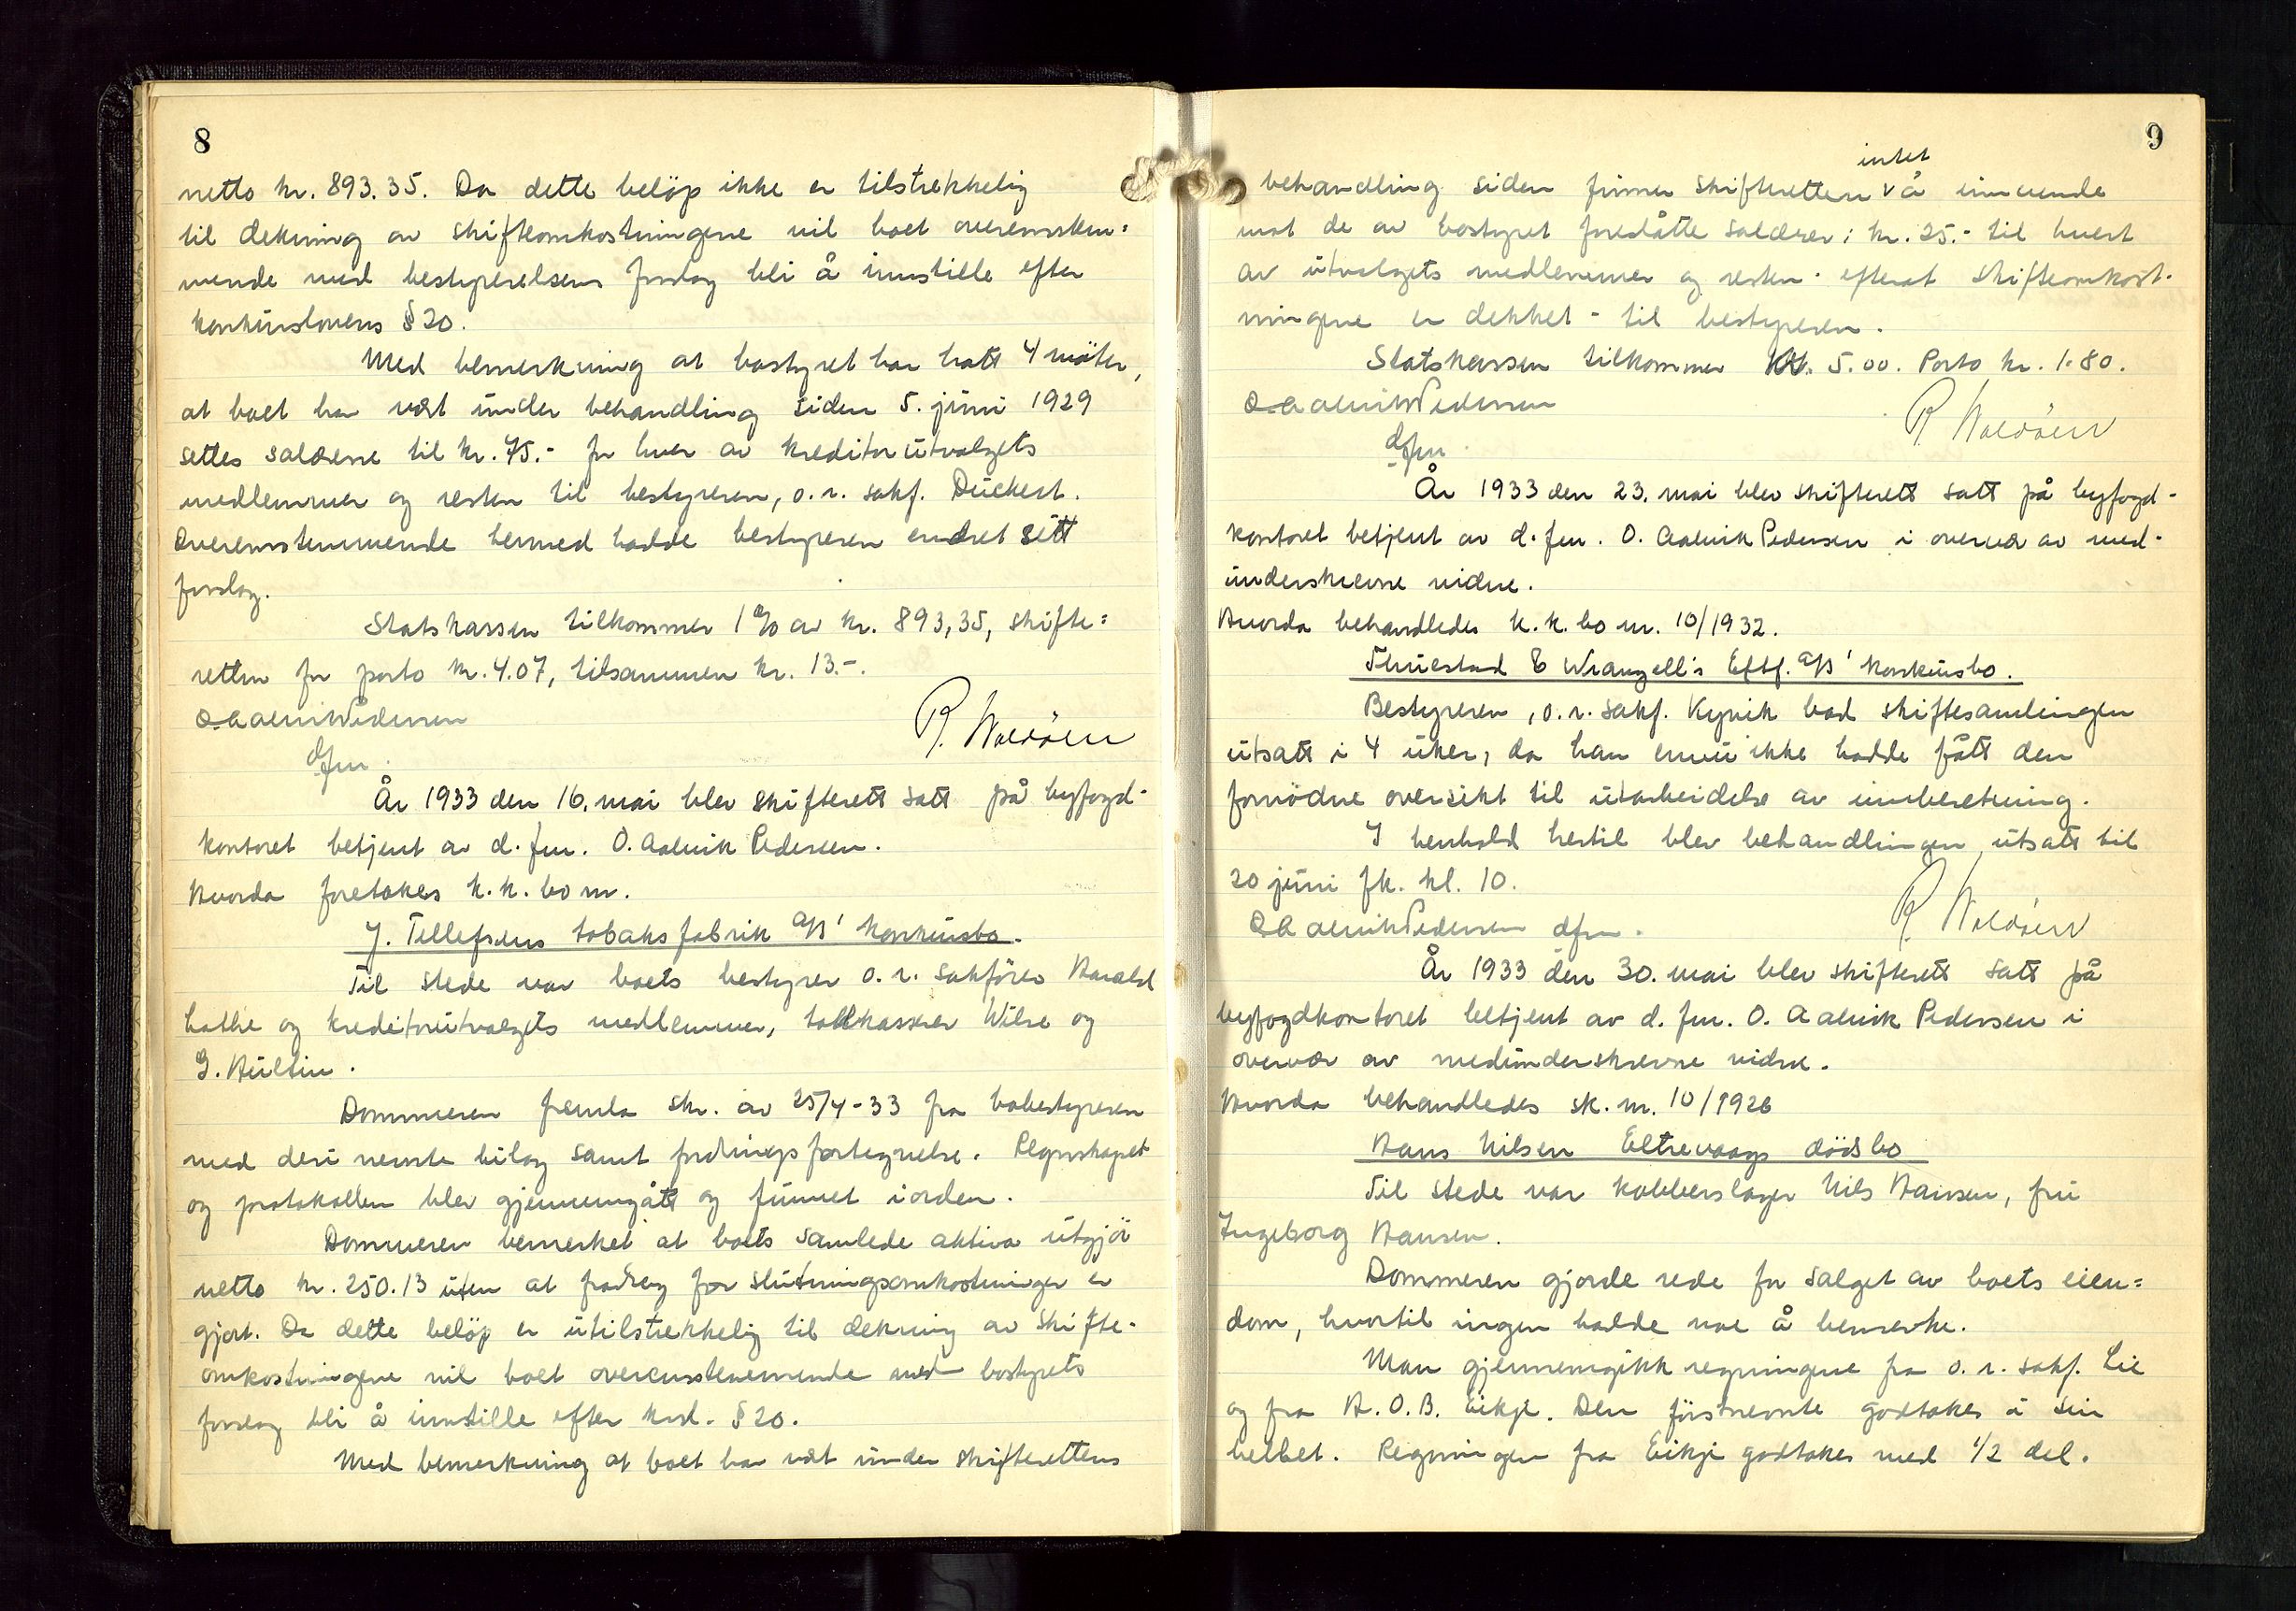 8
netto kr. 893.35. Da dette beløp ikke er tilstrekkelig
til dekning av skifteomkostningene vil boet overensstem=
mende med bestyrerelsens forslag bli å innstille efter
konkurslovens § 20.
Med bemerkning at bostyret har hatt 4 møter,
at boet har vært under behandling siden 5. juni 1929
settes salærene til kr. 75.- for hver av kreditorutvalgets
medlemmer og resten til bestyreren, o.r. sakf. Duckert.
Overensstemmende hermed hadde bestyreren endret sitt
forslag.
Statskassen tilkommer 1% av kr. 893,35, skifte=
retten for porto kr. 4.07, tilsammen kr. 13.-.
O. Aalvik Pedersen
dfm.
R.
År 1933 den 16. mai blev skifterett satt på byfogd-
kontoret betjent av d. fm. O. Aalvik Pedersen.
Hvorda foretakes k.k. bo nr.
J. Tellefsens tobaksfabrik A/S' konkursbo.
Til stede var boets bestyrer o.r. sakfører Harald
Lothe og kreditorutvalgets medlemmer, tollkasserer Wilse og
G. Hultin.
Dommeren fremla skr. av 25/4-33 fra bobestyreren
med deri nevnte bilag samt fordringsfortegnelse. Regnskapet
og protokollen blev gjennemgått og funnet iorden.
Dommeren bemerket at boets samlede aktiva utgjør
netto kr. 250.13 uten at fradrag for slutningsomkostninger er
gjort. Da dette beløp er utilstrekkelig til dekning av skifte-
omkostningene vil boet overensstemmende med bostyrets
forslag bli å innstille efter kod. § 20.
Med bemerkning at boet har vært under skifterettens
9
intet
behandling siden finner skifteretten v å innvende
mot de av bostyret foreslåtte salærer; kr. 25.- til hvert
av utvalgets medlemmer og resten - efterat skifteomkost-
ningene er dekket - til bestyreren.
Statskassen tilkommer kr. 5.00. Porto kr. 1.80.
O. Aalvik Pedersen
R.
dfm
År 1933 den 23. mai blev skifterett satt på byfogd-
kontoret betjent av d. fm. O. Aalvik Pedersen i overvær av med-
underskrevne vidne.
Hvorda behandledes k.k. bo nr. 10/1932.
Thuestad & Wrangell's Eftf. A/S' konkursbo.
Bestyreren, o.r. sakf. Kyvik bad skiftesamlingen
utsatt i 4 uker, da han ennu ikke hadde fått den
fornødne oversikt til utarbeidelse av innberetning.
I henhold hertil blev behandlingen utsatt til
20 juni fk. kl. 10.
O. Aalvik Pedersen dfm.
R.
År 1933 den 30. mai blev skifterett satt på
byfogdkontoret betjent av d. fm. O. Aalvik Pedersen i
overvær av medunderskrevne vidne.
Hvorda behandledes sk. nr. 10/1926
Hans Nilsen Eltrevaags dødsbo
Til stede var kobberslager Nils Hansen, fru
Ingeborg Hansen.
Dommeren gjorde rede for salget av boets eien=
dom, hvortil ingen hadde noe å bemerke.
Man gjennemgikk regningene fra o.r. sakf. Lie
og fra H.O.B. Eikje. Den førstnevnte godtakes i sin
helhet. Regningen fra Eikje godtakes med 1/2 del.